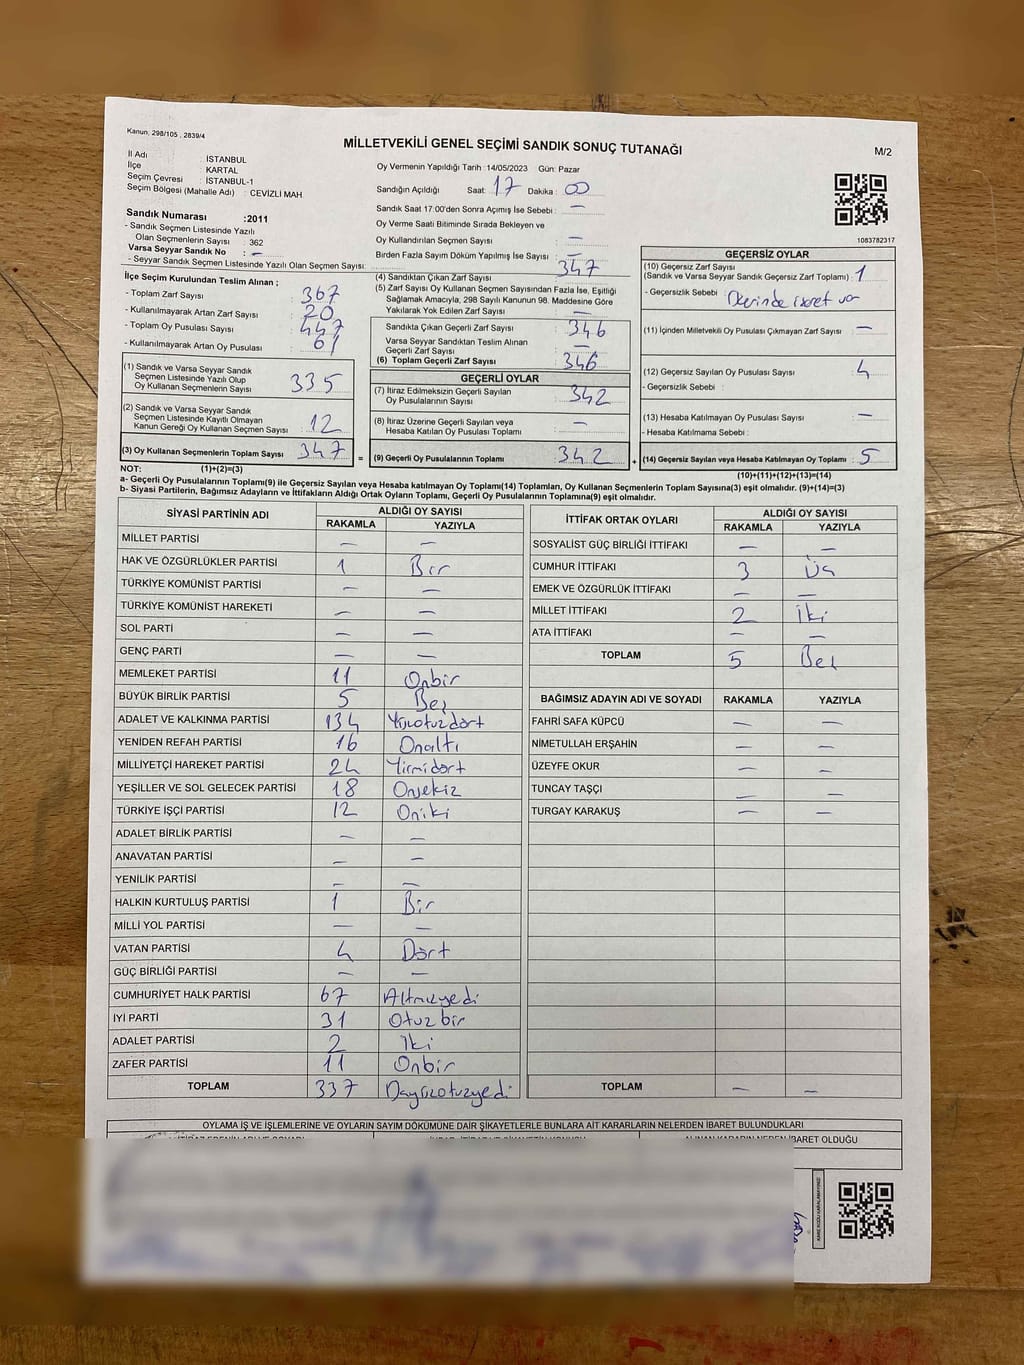 Kanun, 298/105 , 2839/4
MİLLETVEKİLİ GENEL SEÇİMİ SANDIK SONUÇ TUTANAĞI
M/2
İl Adı : İSTANBUL
İlçe : KARTAL
Seçim Çevresi : İSTANBUL-1
Seçim Bölgesi (Mahalle Adı) : CEVİZLİ MAH.
Sandık Numarası :2011
- Sandık Seçmen Listesinde Yazılı
Olan Seçmenlerin Sayısı : 362
Varsa Seyyar Sandık No : —
- Seyyar Sandık Seçmen Listesinde Yazılı Olan Seçmen Sayısı:
Oy Vermenin Yapıldığı Tarih :14/05/2023 Gün: Pazar
Sandığın Açıldığı Saat: 17 Dakika : 00
Sandık Saat 17:00'den Sonra Açımış İse Sebebi : —
Oy Verme Saati Bitiminde Sırada Bekleyen ve
Oy Kullandırılan Seçmen Sayısı : —
Birden Fazla Sayım Döküm Yapılmış İse Sayısı : —
1083782317
İlçe Seçim Kurulundan Teslim Alınan ;
- Toplam Zarf Sayısı : 367
- Kullanılmayarak Artan Zarf Sayısı : 20
- Toplam Oy Pusulası Sayısı : 447
- Kullanılmayarak Artan Oy Pusulası : 61
(1) Sandık ve Varsa Seyyar Sandık
Seçmen Listesinde Yazılı Olup
Oy Kullanan Seçmenlerin Sayısı : 335
(2) Sandık ve Varsa Seyyar Sandık
Seçmen Listesinde Kayıtlı Olmayan
Kanun Gereği Oy Kullanan Seçmen Sayısı : 12
(3) Oy Kullanan Seçmenlerin Toplam Sayısı : 347
(4) Sandıktan Çıkan Zarf Sayısı : 347
(5) Zarf Sayısı Oy Kullanan Seçmen Sayısından Fazla İse, Eşitliği
Sağlamak Amacıyla, 298 Sayılı Kanunun 98. Maddesine Göre
Yakılarak Yok Edilen Zarf Sayısı : —
Sandıkta Çıkan Geçerli Zarf Sayısı : 346
Varsa Seyyar Sandıktan Teslim Alınan
Geçerli Zarf Sayısı : —
(6) Toplam Geçerli Zarf Sayısı : 346
GEÇERLİ OYLAR
(7) İtiraz Edilmeksizin Geçerli Sayılan
Oy Pusulalarının Sayısı : 342
(8) İtiraz Üzerine Geçerli Sayılan veya
Hesaba Katılan Oy Pusulası Toplamı : —
= (9) Geçerli Oy Pusulalarının Toplamı : 342
GEÇERSİZ OYLAR
(10) Geçersiz Zarf Sayısı
(Sandık ve Varsa Seyyar Sandık Geçersiz Zarf Toplamı) : 1
- Geçersizlik Sebebi : Üzerinde işaret var
(11) İçinden Milletvekili Oy Pusulası Çıkmayan Zarf Sayısı : —
(12) Geçersiz Sayılan Oy Pusulası Sayısı : 4
- Geçersizlik Sebebi :
(13) Hesaba Katılmayan Oy Pusulası Sayısı : —
- Hesaba Katılmama Sebebi :
+ (14) Geçersiz Sayılan veya Hesaba Katılmayan Oy Toplamı : 5
NOT: (1)+(2)=(3)
(10)+(11)+(12)+(13)=(14)
a- Geçerli Oy Pusulalarının Toplamı(9) ile Geçersiz Sayılan veya Hesaba katılmayan Oy Toplamı(14) Toplamları, Oy Kullanan Seçmenlerin Toplam Sayısına(3) eşit olmalıdır. (9)+(14)=(3)
b- Siyasi Partilerin, Bağımsız Adayların ve İttifakların Aldığı Ortak Oyların Toplamı, Geçerli Oy Pusulalarının Toplamına(9) eşit olmalıdır.
SİYASİ PARTİNİN ADI ALDIĞI OY SAYISI
RAKAMLA YAZIYLA
MİLLET PARTİSİ — —
HAK VE ÖZGÜRLÜKLER PARTİSİ 1 Bir
TÜRKİYE KOMÜNİST PARTİSİ — —
TÜRKİYE KOMÜNİST HAREKETİ — —
SOL PARTİ — —
GENÇ PARTİ — —
MEMLEKET PARTİSİ 11 Onbir
BÜYÜK BİRLİK PARTİSİ 5 Beş
ADALET VE KALKINMA PARTİSİ 134 Yüzotuzdört
YENİDEN REFAH PARTİSİ 16 Onaltı
MİLLİYETÇİ HAREKET PARTİSİ 24 Yirmidört
YEŞİLLER VE SOL GELECEK PARTİSİ 18 Onsekiz
TÜRKİYE İŞÇİ PARTİSİ 12 Oniki
ADALET BİRLİK PARTİSİ — —
ANAVATAN PARTİSİ — —
YENİLİK PARTİSİ — —
HALKIN KURTULUŞ PARTİSİ 1 Bir
MİLLİ YOL PARTİSİ — —
VATAN PARTİSİ 4 Dört
GÜÇ BİRLİĞİ PARTİSİ — —
CUMHURİYET HALK PARTİSİ 67 Altmışyedi
İYİ PARTİ 31 Otuz bir
ADALET PARTİSİ 2 İki
ZAFER PARTİSİ 11 Onbir
TOPLAM 337
İTTİFAK ORTAK OYLARI ALDIĞI OY SAYISI
RAKAMLA YAZIYLA
SOSYALİST GÜÇ BİRLİĞİ İTTİFAKI — —
CUMHUR İTTİFAKI 3 Üç
EMEK VE ÖZGÜRLÜK İTTİFAKI — —
MİLLET İTTİFAKI 2 İki
ATA İTTİFAKI — —
TOPLAM 5 Beş
BAĞIMSIZ ADAYIN ADI VE SOYADI RAKAMLA YAZIYLA
FAHRİ SAFA KÜPCÜ — —
NİMETULLAH ERŞAHİN — —
ÜZEYFE OKUR — —
TUNCAY TAŞÇI — —
TURGAY KARAKUŞ — —
TOPLAM — —
OYLAMA İŞ VE İŞLEMLERİNE VE OYLARIN SAYIM DÖKÜMÜNE DAİR ŞİKAYETLERLE BUNLARA AİT KARARLARIN NELERDEN İBARET BULUNDUKLARI
ALINAN KARARIN NEDEN İBARET OLDUĞU